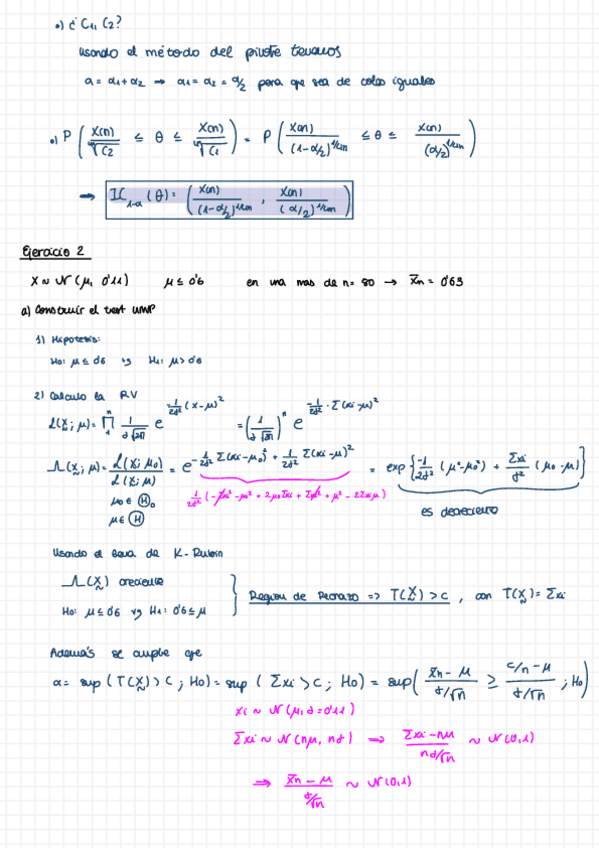 •) ¿ C₁, C₂?
Usando el método del pivote tenemos
α = α₁+α₂ → α₁ = α₂ = α/2 para que sea de colas iguales
•) P ( X(n) / ⁿ√C₂ ≤ θ ≤ X(n) / ⁿ√C₁ ) = P ( X(n) / (1-α/2)^1/ ≤ θ ≤ X(n) / (α/2)^1/ )
→ IC₁₋α (θ) = ( X(n) / (1-α/2)^1/ , X(n) / (α/2)^1/ )
Ejercicio 2
X ~ N (μ, 0'11) μ ≤ 0'6 en una mas de n= 80 → x̄n = 0'63
a) Construir el test UMP
1) Hipotesis:
H₀: μ ≤ 0'6 vs H₁: μ > 0'6
2) Calculo la RV
L(x; μ) = ∏ 1/(σ√2π) e^{-1/2σ² (x-μ)²} = (1/(σ√2π))ⁿ e^{-1/2σ² · Σ(xi-μ)²}
Λ(x; μ) = L(x; μ₀) / L(x; μ) = e^{-1/2σ² Σ(xi-μ₀)² + 1/2σ² Σ(xi-μ)²} = exp{ -1/2σ² (μ²-μ₀²) + Σxi/σ² (μ₀-μ) }
μ₀ ∈ Ⓗ₀
μ ∈ Ⓗ
1/2σ² (-Σxi² - μ₀² + 2μ₀Σxi + Σxi² + μ² - 2Σxiμ)
es decreciente
Usando el lema de K-Rubin
Λ(x) creciente
H₀: μ ≤ 0'6 vs H₁: 0'6 ≤ μ
Region de Rechazo => T(X) > c , con T(X) = Σxi
Además se cumple que
α = sup (T(X) > C ; H₀) = sup ( Σxi > C ; H₀) = sup ( (x̄n - μ) / (σ/√n) ≥ (c/n - μ) / (σ/√n) ; H₀)
xi ~ N (μ, σ = 0'11)
Σxi ~ N (nμ, nσ) ⟹ (Σxi - nμ) / (nσ/√n) ~ N (0,1)
⟹ (x̄n - μ) / (σ/√n) ~ N (0,1)